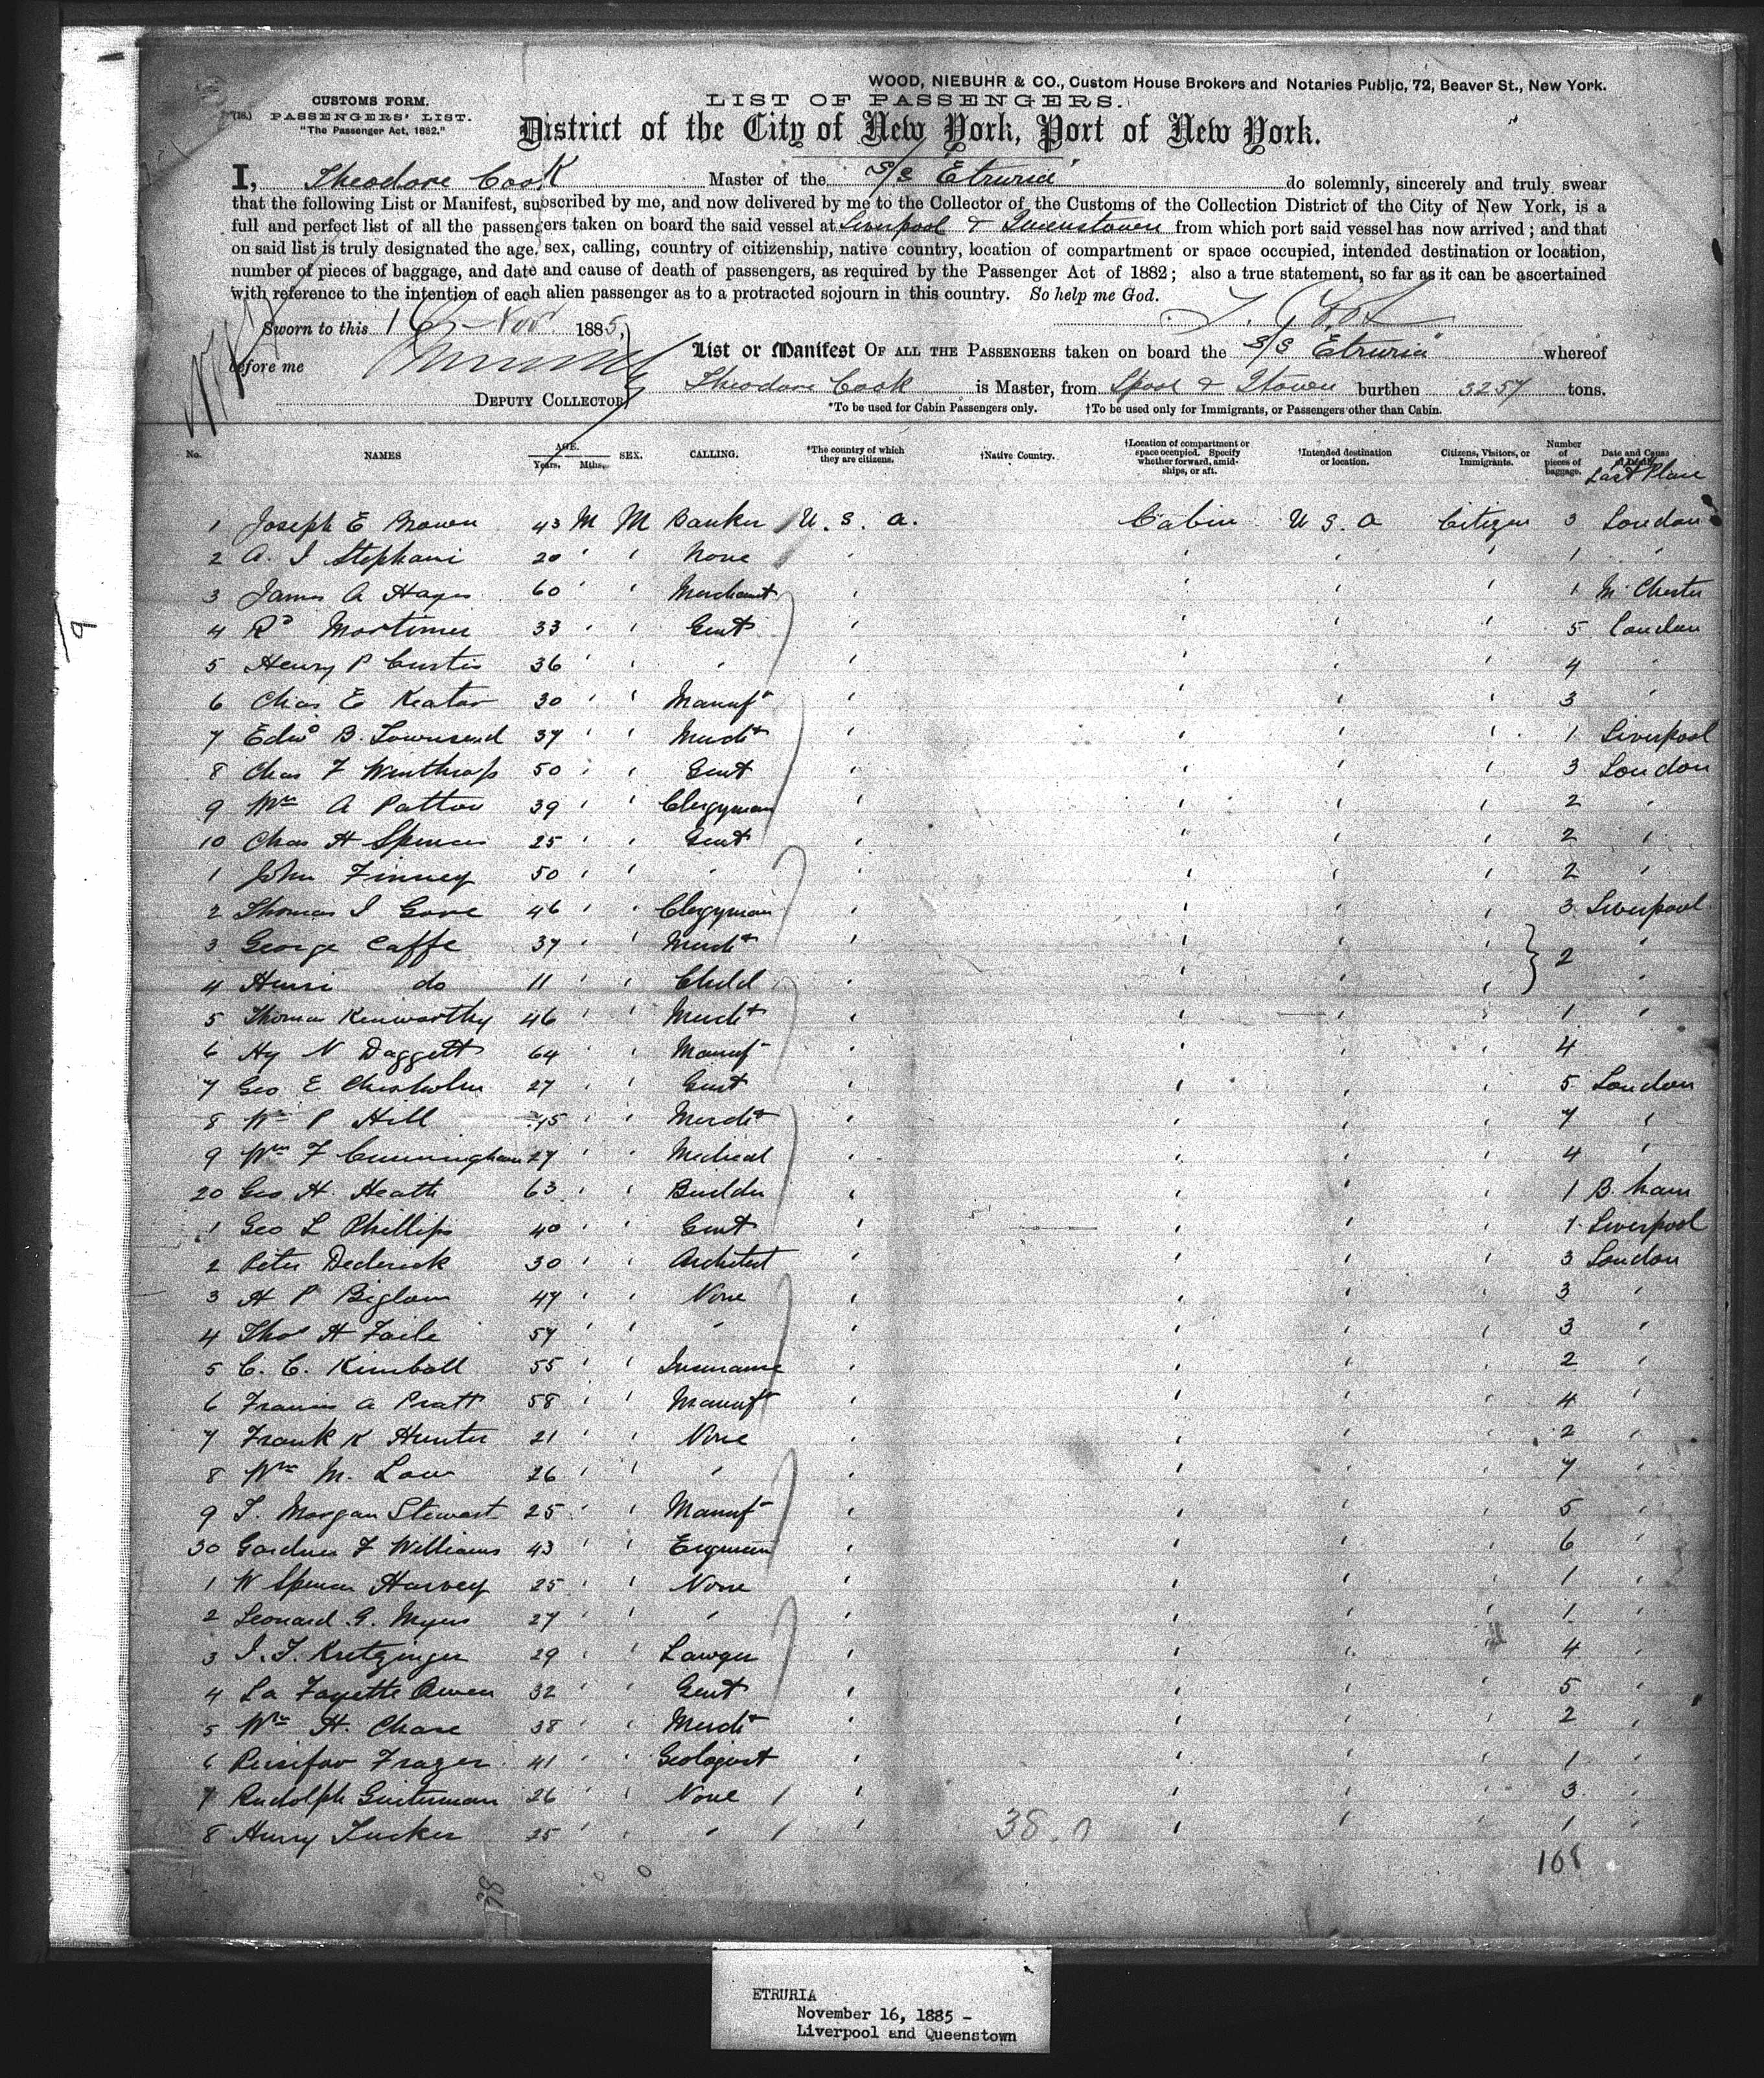 WOOD, NIEBUHR & CO., Custom House Brokers and Notaries Public, 72, Beaver St., New York.
CUSTOMS FORM.
PASSENGERS' LIST.
"The Passenger Act, 1882."
LIST OF PASSENGERS.
District of the City of New York, Port of New York.
I, Theodore Cook Master of the S/S "Etruria" do solemnly, sincerely and truly swear
that the following List or Manifest, subscribed by me, and now delivered by me to the Collector of the Customs of the Collection District of the City of New York, is a
full and perfect list of all the passengers taken on board the said vessel at Liverpool & Queenstown from which port said vessel has now arrived; and that
on said list is truly designated the age, sex, calling, country of citizenship, native country, location of compartment or space occupied, intended destination or location,
number of pieces of baggage, and date and cause of death of passengers, as required by the Passenger Act of 1882; also a true statement, so far as it can be ascertained
with reference to the intention of each alien passenger as to a protracted sojourn in this country. So help me God.
T. Cook
Sworn to this 16 Nov 1885,
before me
List or Manifest OF ALL THE PASSENGERS taken on board the S/S "Etruria" whereof
DEPUTY COLLECTOR
Theodore Cook is Master, from Lpool & Qtown burthen 3257 tons.
*To be used for Cabin Passengers only. †To be used only for Immigrants, or Passengers other than Cabin.
No. NAMES AGE. Years. Mths. SEX. CALLING. *The country of which they are citizens. †Native Country. †Location of compartment or space occupied. Specify whether forward, amidships, or aft. †Intended destination or location. Citizens, Visitors, or Immigrants. Number of pieces of baggage. Date and Cause of Death. Last Place
1 Joseph E Brown 43 M M Banker U. S. A. Cabin U S. A Citizen 3 London
2 A. I Stephani 20 ' ' None ' ' ' ' 1 '
3 James A Hayes 60 ' ' Merchant ' ' ' ' 1 M. Chester
4 Rd Mortimer 33 ' ' Gent ' ' ' ' 5 London
5 Henry P Curtis 36 ' ' ' ' ' ' ' 4 '
6 Chas E Keator 30 ' ' Manufr ' ' ' ' 3 '
7 Edwd B. Townsend 37 ' ' Mercht ' ' ' ' 1 Liverpool
8 Chas F Winthrop 50 ' ' Gent ' ' ' ' 3 London
9 Wm A Patton 39 ' ' Clergyman ' ' ' ' 2 '
10 Chas H Spencer 25 ' ' Gent ' ' ' ' 2 '
1 John Finney 50 ' ' ' ' ' ' 2 '
2 Thomas I Gore 46 ' ' Clergyman ' ' ' ' 3 Liverpool
3 George Caffe 37 ' ' Mercht ' ' ' ' 2 '
4 Henri do 11 ' ' Child ' ' ' ' '
5 Thomas Kenworthy 46 ' ' Mercht ' ' ' ' 1 '
6 Hy N Daggett 64 ' ' Manufr ' ' ' ' 4
7 Geo E Chisholm 27 ' ' Gent ' ' ' ' 5 London
8 Wm P Hill 45 ' ' Mercht ' ' ' ' 7 '
9 Wm F Cunningham 27 ' ' Medical ' ' ' ' 4 '
20 Geo H. Heath 63 ' ' Builder ' ' ' ' 1 B. ham
1 Geo L Phillips 40 ' ' Gent ' ' ' ' 1 Liverpool
2 Peter Dederick 30 ' ' Architect ' ' ' ' 3 London
3 H P Biglow 47 ' ' None ' ' ' ' 3 '
4 Thos H Faile 57 ' ' ' ' ' ' ' 3 '
5 C. C. Kimball 55 ' ' Insurance ' ' ' ' 2 '
6 Francis A Pratt 58 ' ' Manufr ' ' ' ' 4 '
7 Frank K Hunter 21 ' ' None ' ' ' ' 2 '
8 Wm M. Low 26 ' ' ' ' ' ' ' 7 '
9 T. Morgan Stewart 25 ' ' Manufr ' ' ' ' 5 '
30 Gardner F Williams 43 ' ' Engineer ' ' ' ' 6 '
1 W Spencer Harvey 25 ' ' None ' ' ' ' 1 '
2 Leonard G. Myers 27 ' ' ' ' ' ' ' 1 '
3 I. T. Kretzinger 29 ' ' Lawyer ' ' ' ' 4 '
4 La Fayette Owen 32 ' ' Gent ' ' ' ' 5 '
5 Wm H. Chase 38 ' ' Mercht ' ' ' ' 2 '
6 Persifor Frazer 41 ' ' Geologist ' ' ' ' 1 '
7 Rudolph Guiterman 26 ' ' None ' ' ' ' 3 '
8 Henry Tucker 25 ' ' ' ' ' ' ' 1 '
38
108
9
ETRURIA
November 16, 1885 -
Liverpool and Queenstown